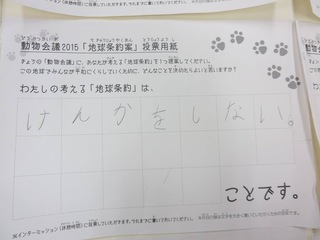 動物会議2015「地球条約案」投票用紙
きょうの「動物会議」に、あなたが考える「地球条約」を1つ提案してください。
この地球でみんなが平和にくらしていくために、どんなことを決めたらいいと思いますか?
わたしの考える「地球条約」は、
けんかをしない。
ことです。
※インターミッション(休憩時間)に投票していただきます。それまでに書いておいてください。